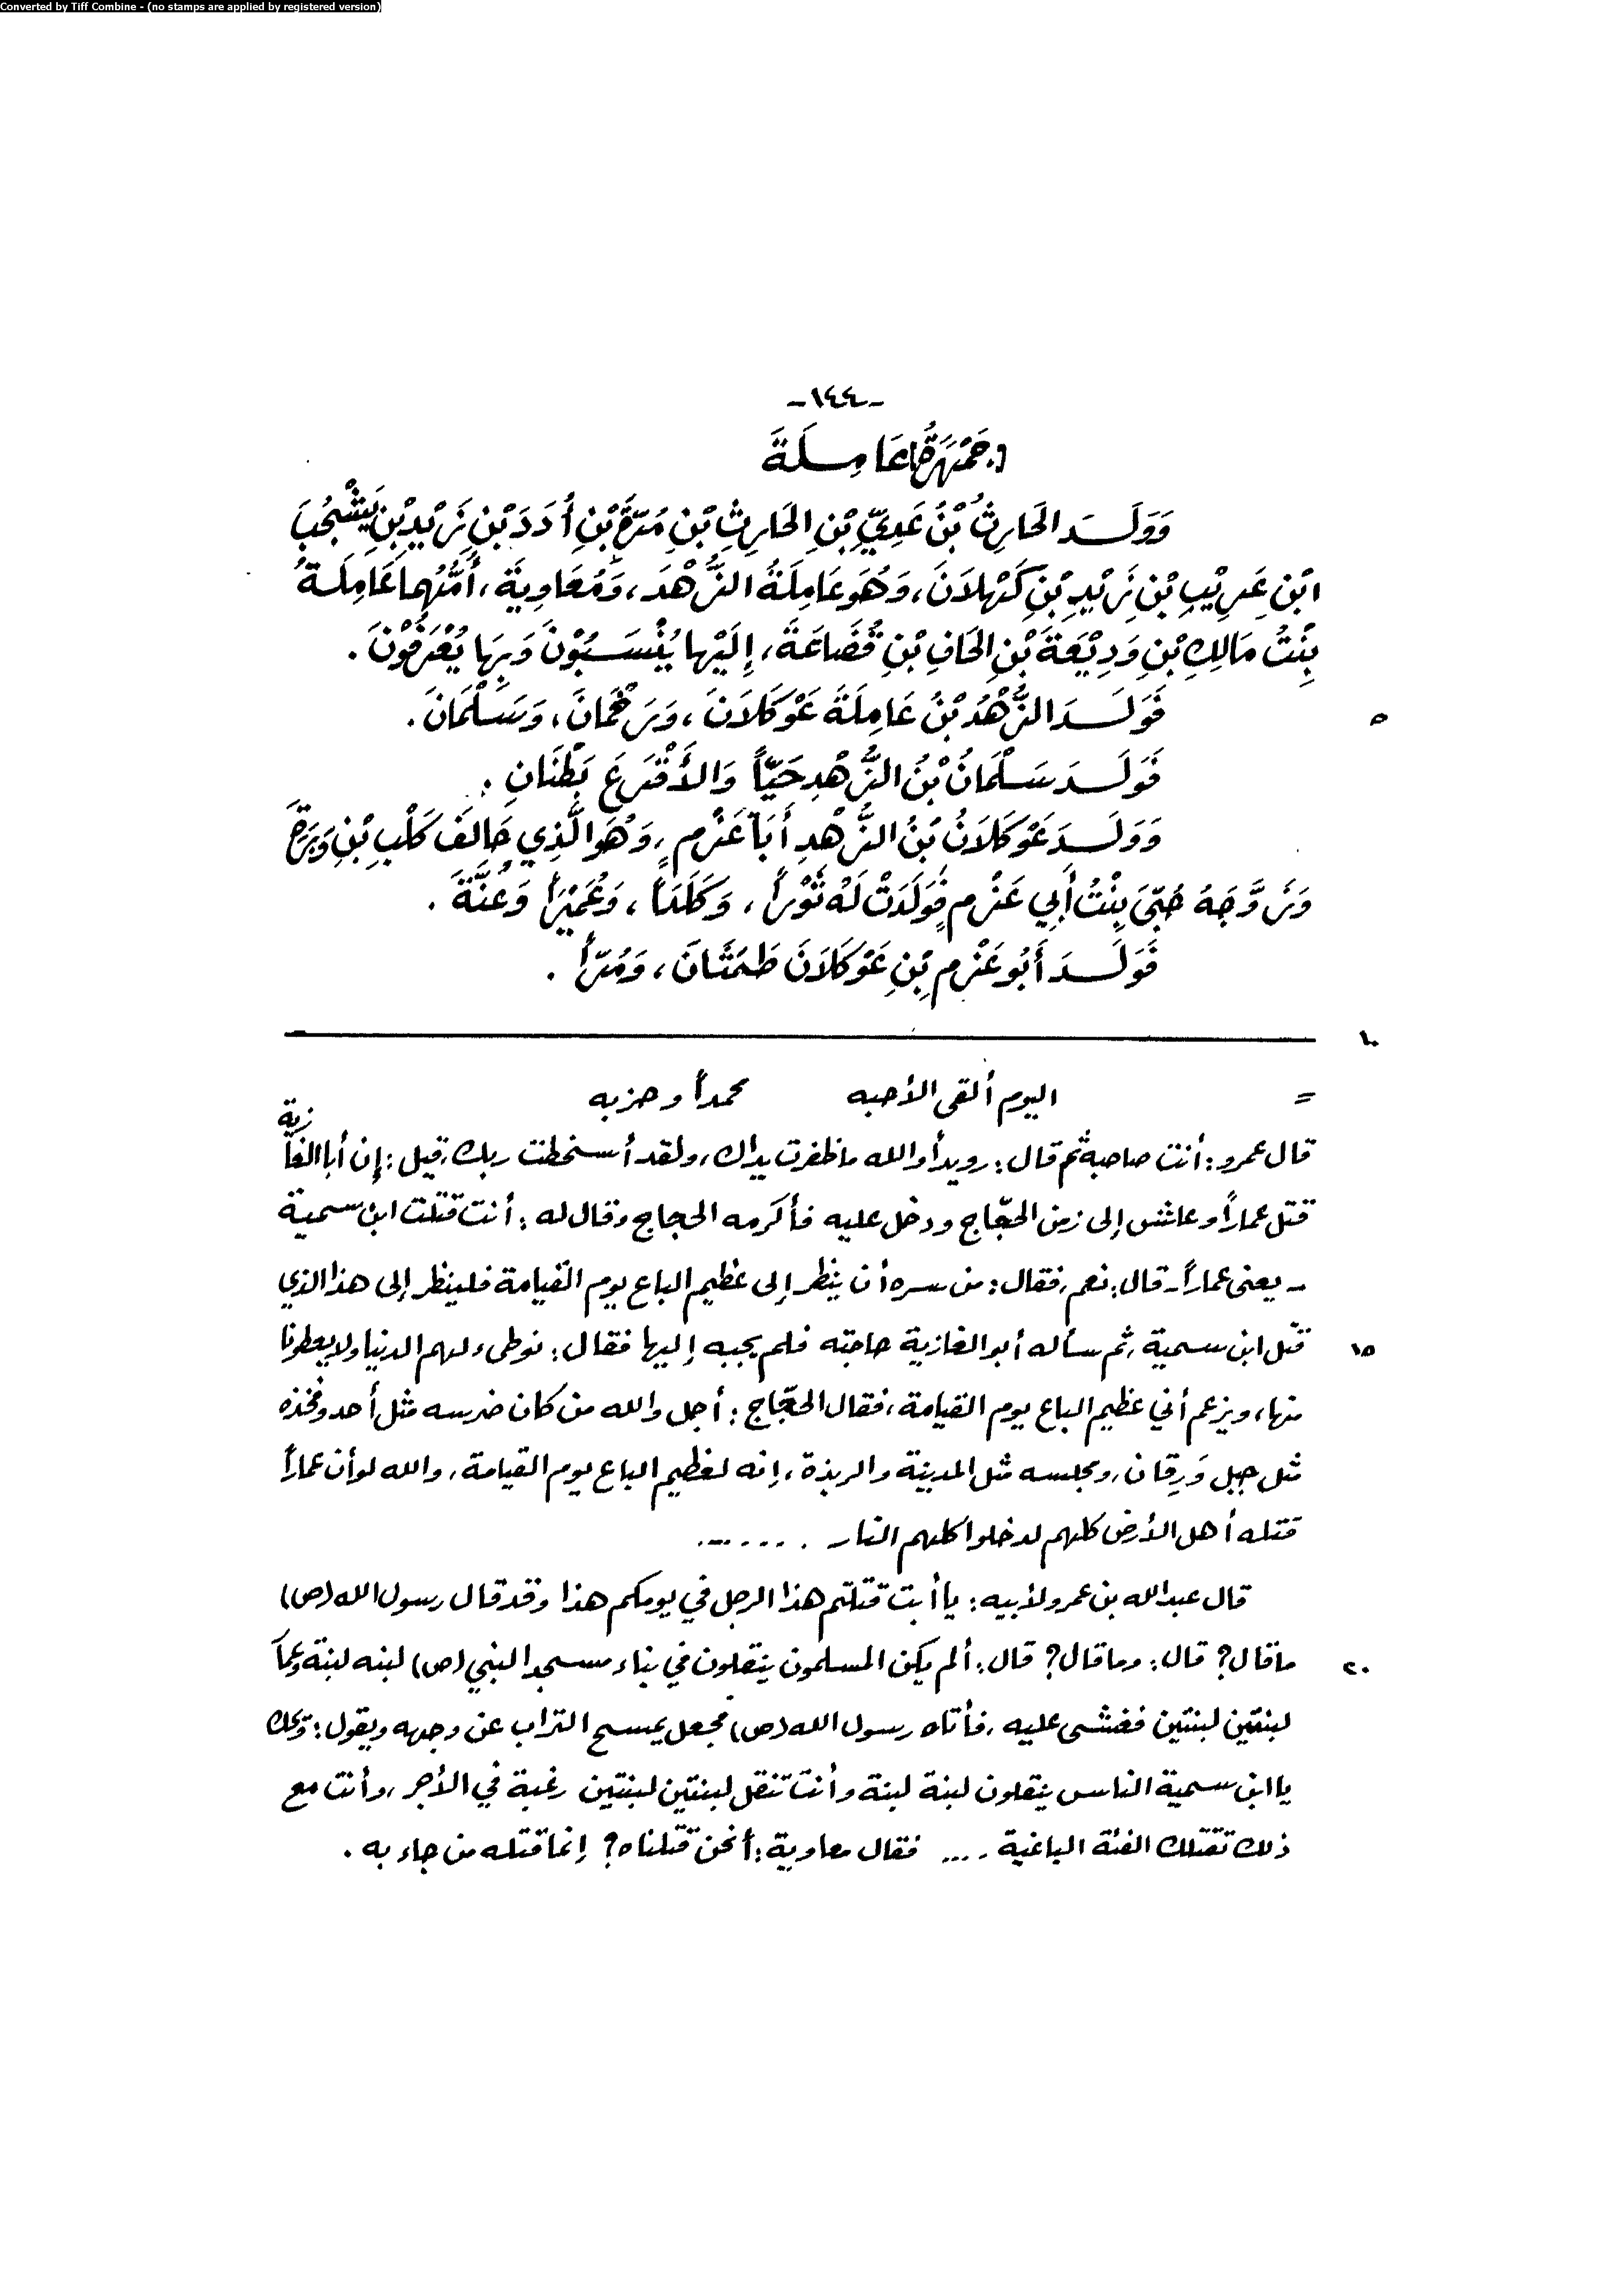 Converted by Tiff Combine - (no stamps are applied by registered version)
-١٤٤-
جَمْهَرَةُ عَامِلَةَ
وَوَلَدَ الحَارِثُ بْنُ عَدِيِّ بْنِ الحَارِثِ بْنِ مُرَّةَ بْنِ أُدَدَ بْنِ زَيْدِ بْنِ يَشْجُبَ
ابْنِ عَرِيْبِ بْنِ زَيْدِ بْنِ كَهْلَانَ، وَهُوَ عَامِلَةُ الزُّهْدَ، وَمُعَاوِيَةَ، أُمُّهُمَا عَامِلَةُ
بِنْتُ مَالِكِ بْنِ وَدِيْعَةَ بْنِ الحَافِ بْنِ قُضَاعَةَ، إِلَيْهَا يُنْسَبُوْنَ وَبِهَا يُعْرَفُوْنَ.
فَوَلَدَ الزُّهْدُ بْنُ عَامِلَةَ عَوْكَلَانَ، وَسَلْمَانَ. ٥
فَوَلَدَ سَلْمَانُ بْنُ الزُّهْدِ حَيّاً وَالأَقْرَعَ بَطْنَانِ.
وَوَلَدَ عَوْكَلَانُ بْنُ الزُّهْدِ أَبَا عَزْمٍ، وَهُوَ الَّذِي حَالَفَ كَلْبَ بْنِ وَبَرَةَ
وَزَوَّجَهُ حُبَّى بِنْتُ أَبِي عَزْمٍ فَوَلَدَتْ لَهُ ثَوْراً، وَكَلَدَاً، وَعُمَيْرَاً وَعُنَّةَ.
فَوَلَدَ أَبُو عَزْمِ بْنِ عَوْكَلَانَ طَمَثَانَ، وَمُرّاً.
١٠
= اليوم ألقى الأحبه محمداً وحزبه
قال عمرو: أنت صاحبه ثم قال: رويداً والله ما ظفرت يداك، ولقد أسخطت ربك، قيل: إن أبا الغازية
قتل عماراً وعاش إلى زمن الحجّاج ودخل عليه فأكرمه الحجاج وقال له: أنت قتلت ابن سمية
- يعني عماراً - قال: نعم، فقال: من سره أن ينظر إلى عظيم الباع يوم القيامة فلينظر إلى هذا الذي
قتل ابن سمية، ثم سأله أبو الغازية حاجته فلم يجبه إليها فقال: نوطىء لهم الدنيا ولا يعطونا ١٥
منها، ويزعم أني عظيم الباع يوم القيامة، فقال الحجّاج: أجل والله من كان ضرسه مثل أحد وفخذه
مثل جبل وَرِقان، ومجلسه مثل المدينة والربذة، إنه لعظيم الباع يوم القيامة، والله لو أن عماراً
قتله أهل الأرض كلهم لدخلوا كلهم النار .......
قال عبد الله بن عمرو لأبيه: يا أبت قتلتم هذا الرجل في يومكم هذا وقد قال رسول الله (ص)
ما قال؟ قال: وما قال؟ قال: ألم يكن المسلمون ينقلون في بناء مسجد النبي (ص) لبنه لبنة وعمار ٢٠
لبنتين لبنتين فغشي عليه، فأتاه رسول الله (ص) فجعل يمسح التراب عن وجهه ويقول: ويحك
يا ابن سمية الناس ينقلون لبنة لبنة وأنت تنقل لبنتين لبنتين رغبة في الأجر، وأنت مع
ذلك تقتلك الفئة الباغية .... فقال معاوية: أنحن قتلناه؟ إنما قتله من جاء به.